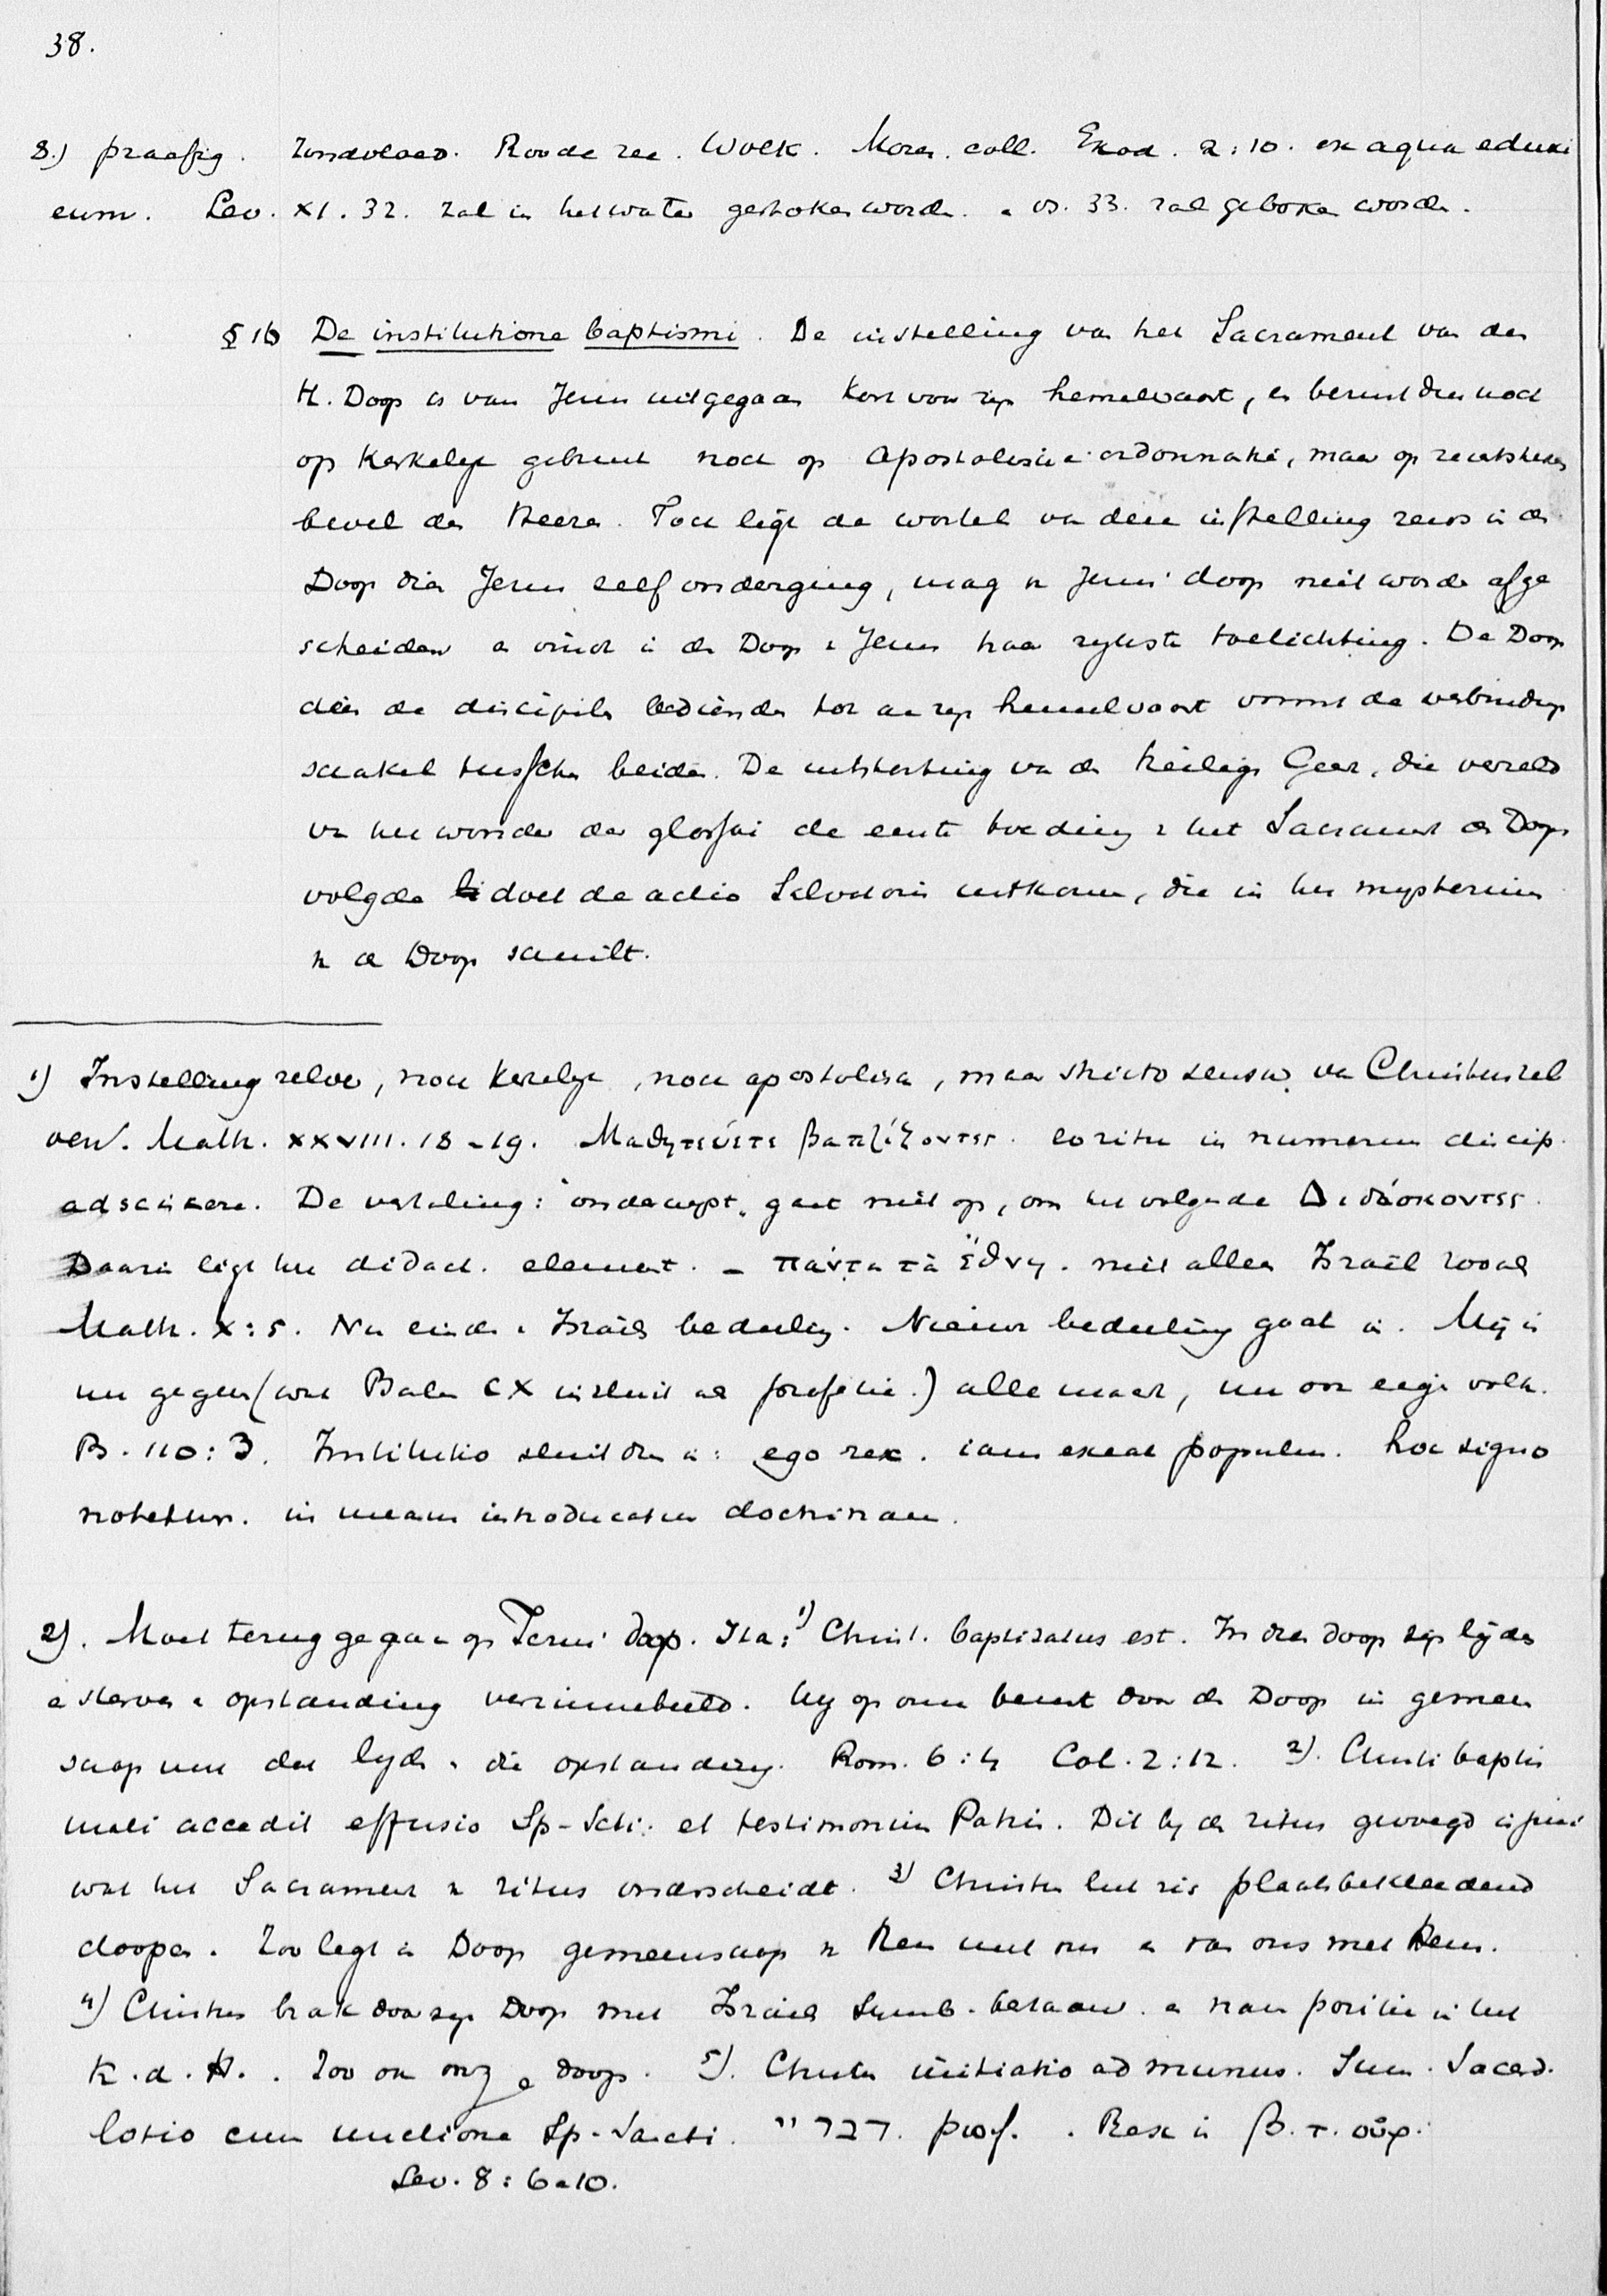 38.
8.) praefig. Zondvloed. Roode zee. Wolk. Mozes. coll. Exod. 2:10. ex aqua eduxi
eum. Lev. XI. 32. zal in het water gestoken worden. vs. 33. zal gebroken worden.
§ 16 De institutione baptismi. De instelling van het Sacrament van den
H. Doop is van Jezus uitgegaan kort voor zijn hemelvaart, en berust dus noch
op kerkelijk gebruik noch op Apostolische ordonnantie, maar op rechtstreeks
bevel des Heeren. Toch ligt de wortel van deze instelling reeds in den
Doop dien Jezus zelf onderging, mag van Jezus' doop niet worden afge
scheiden en vindt in den Doop v Jezus haar rijkste toelichting. De Doop
dien de discipelen bedienden tot aan zijn hemelvaart vormt de verbindings
schakel tusschen beiden. De uitstorting van den Heiligen Geest, die verzeld
van het wonder der glossai de eerste bediening v het Sacrament des Doops
volgde doet de actio Salvatoris uitkomen, die in het mysterium
v d Doop schuilt.
1) Instelling zelve, noch kerkelijk, noch apostolisch, maar stricto sensu van Christus zel
ven. Matth. XXVIII. 18-19. Μαθητεύετε βαπτίζοντες. eo ritu in numerum discip.
adsciscere. De vertaling: "onderwijst" gaat niet op, om het volgende Διδάσκοντες.
Daarin ligt het didact. element. - πάντα τὰ ἔθνη. niet alleen Israël zooals
Matth. X:5. Nu einde v Israëls bedeeling. Nieuwe bedeeling gaat in. Mij is
nu gegeven (wat Psalm CX insluit als profetie.) alle macht, nu ook eigen volk.
Ps. 110:3. Institutio sluit dus in: ego rex. iam exeat populus. hoc signo
notetur. in meam introducatur doctrinam.
2). Moet teruggegaan op Jezus' doop. Ita: 1) Christ. baptizatus est. In dien doop zijn lijden
en sterven en opstanding verzinnebeeld. Wij op onze beurt door den Doop in gemeen
schap met dat lijden en die opstanding. Rom. 6:4 Col. 2:12. 2). Christi baptis
mati accedit effusio Sp-Scti. et testimonium Patris. Dit bij den ritus gevoegd is juist
wat het Sacrament v ritus onderscheidt. 3) Christus liet zich plaatsbekleedend
doopen. Zoo legt in Doop gemeenschap v Hem met ons en van ons met Hem.
4) Christus brak door zijn Doop met Israëls en nam positie in het
K.d.H. Zoo ook onze doop. 5). Christi initiatio ad munus. Sum. Sacerd.
lotio cum unctione Sp-Sancti. prof. Rex in β. τ. οὐρ.
Lev. 8:6-10.